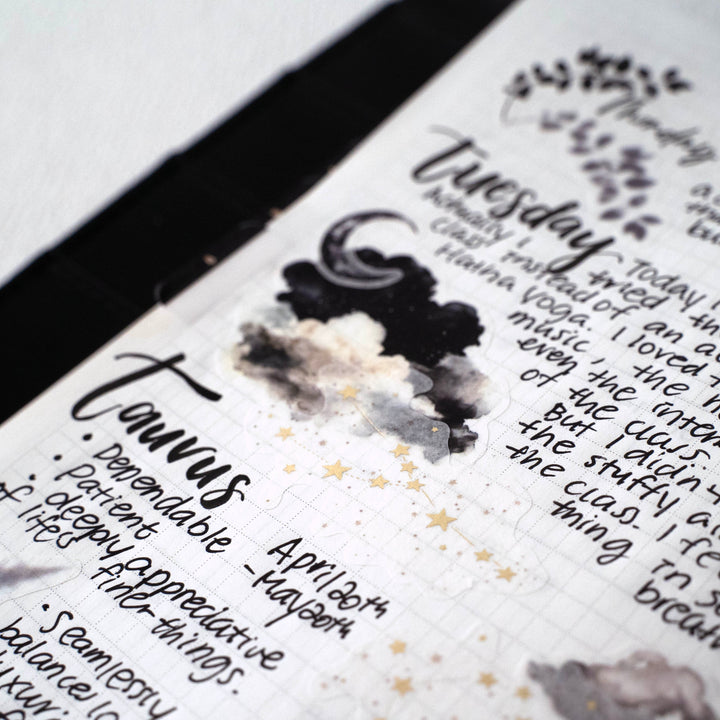 Thursday
Tuesday
Today I
Actually, tried
class instead of an
Hatha yoga.
I loved
music, the
even the
of the class.
But I didn
the stuffy
the class. I
thing
in
breath
Taurus
• Dependable
• patient
• deeply appreciative
of lifes finer things.
April 20th
-May 20th
• Seamlessly
balance